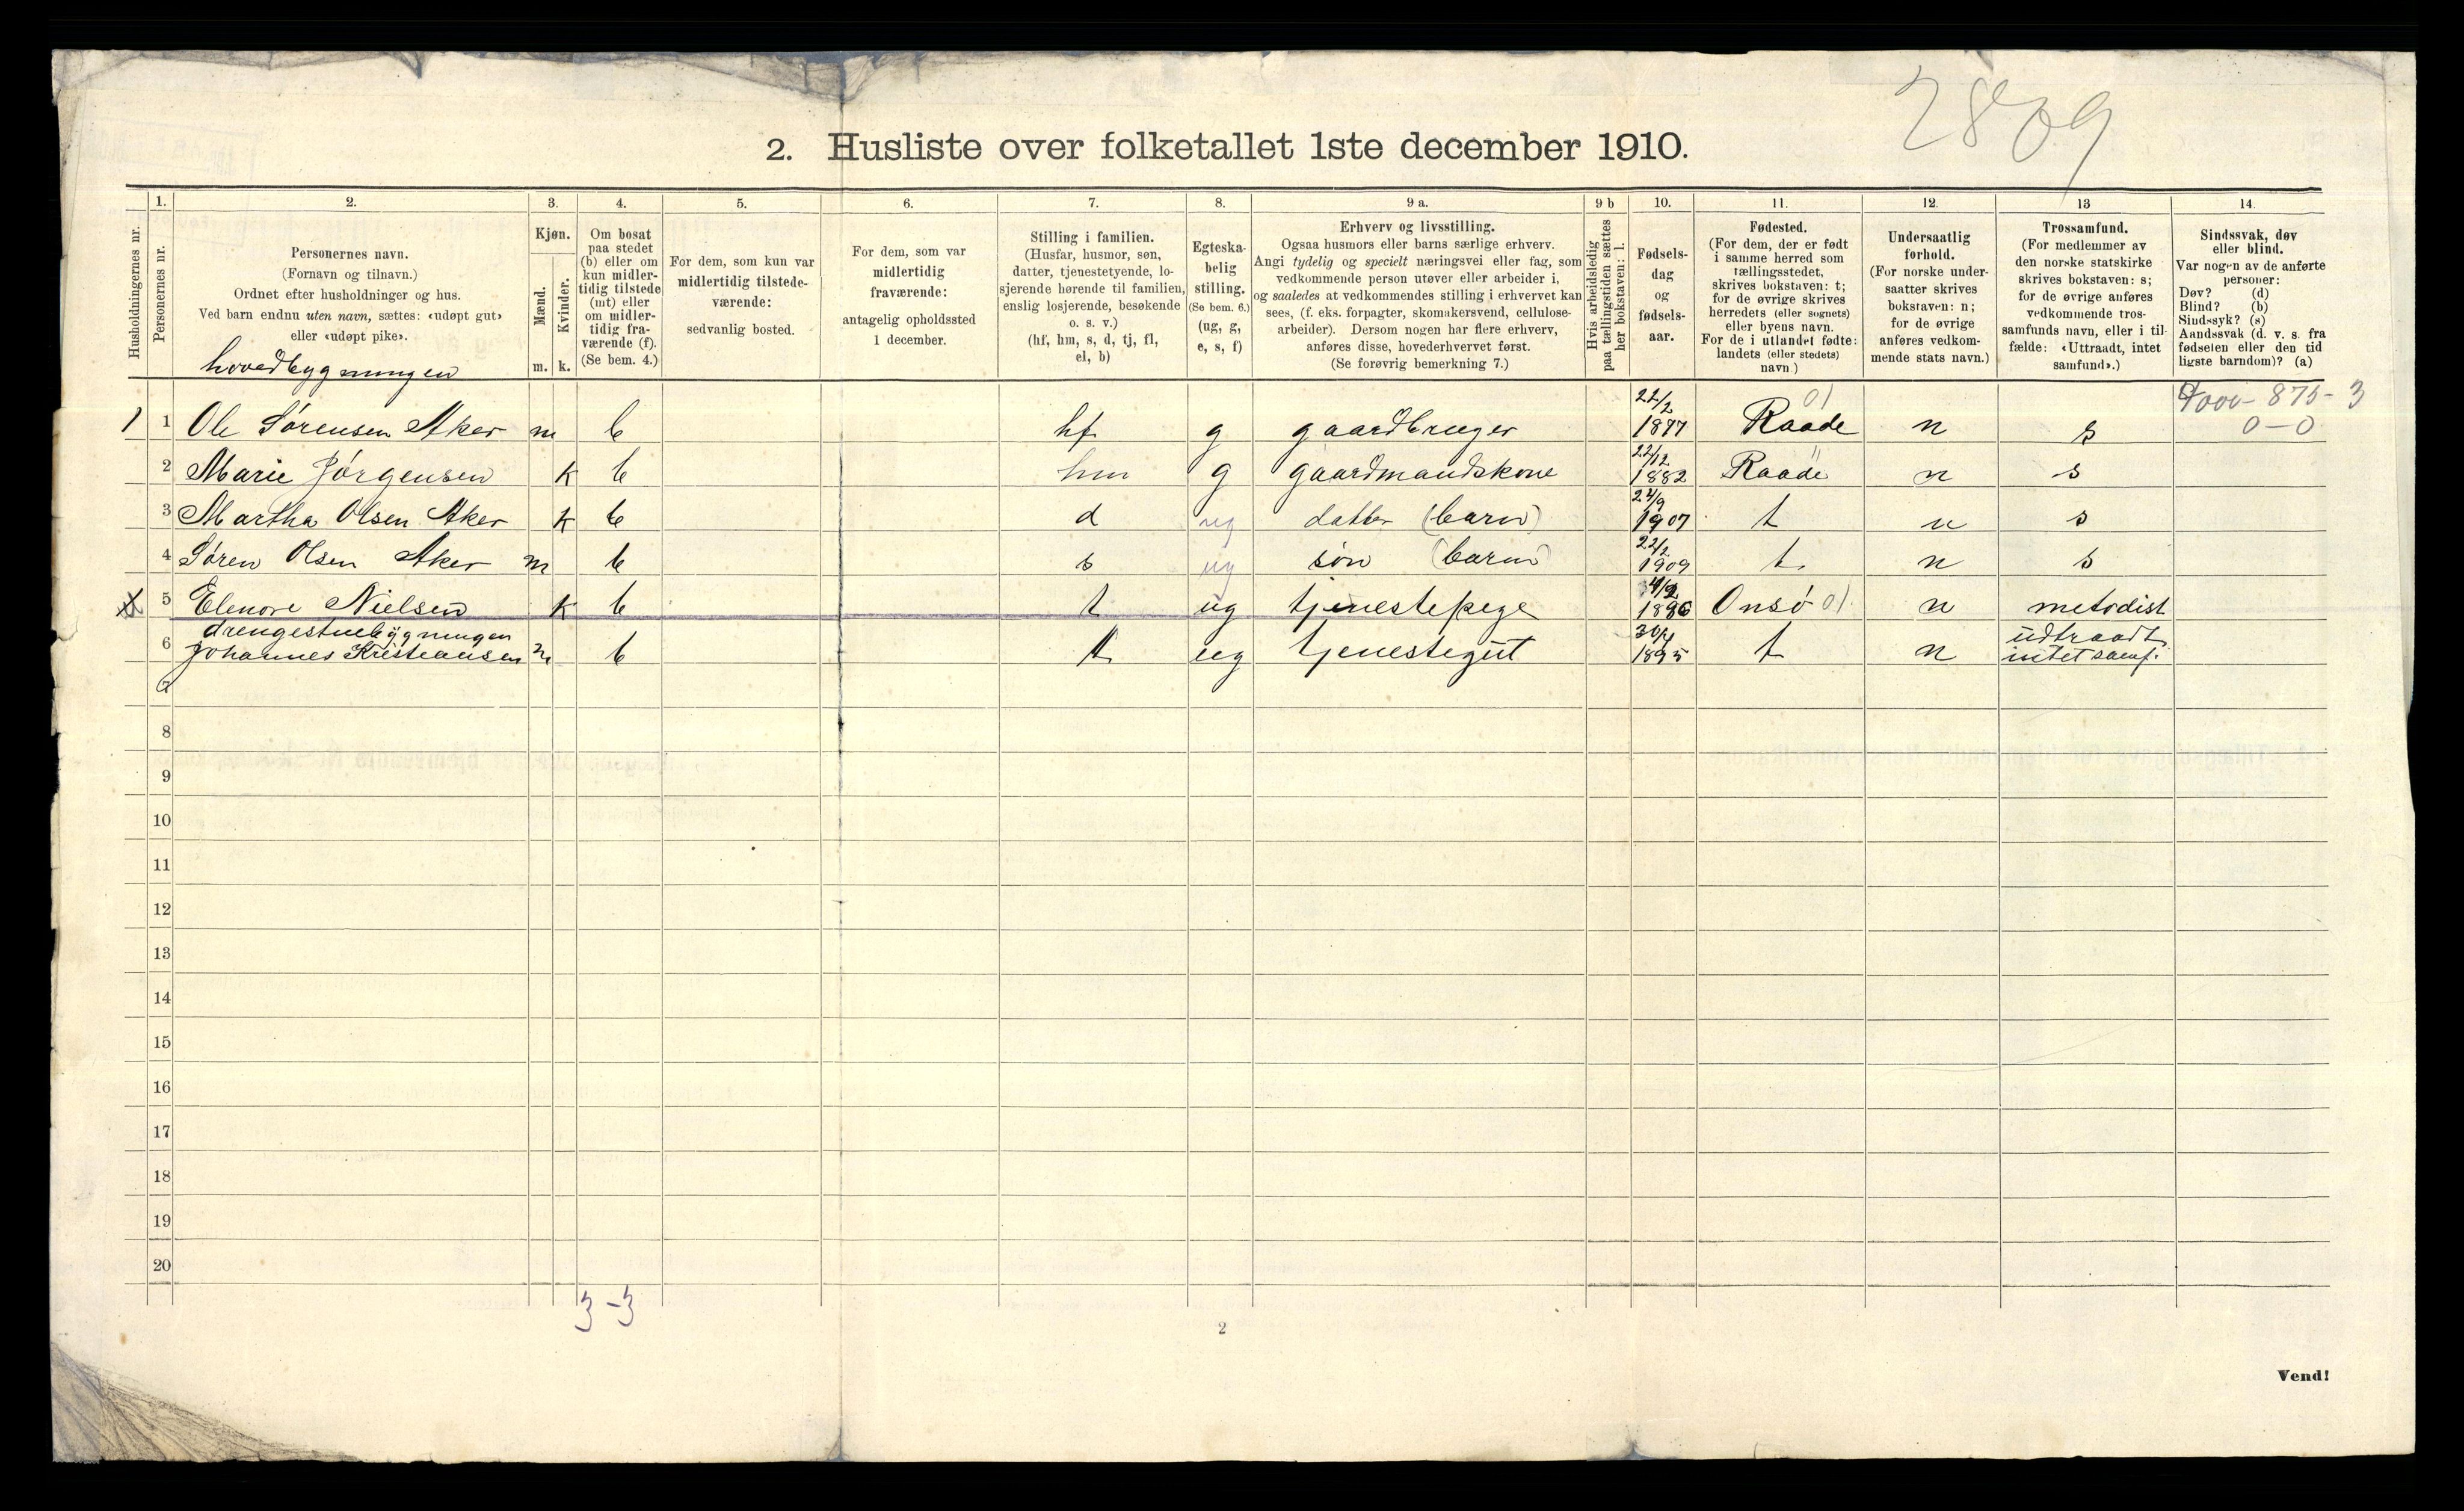 2809
2. Husliste over folketallet 1ste december 1910.
Husholdningernes nr.
1.
Personernes nr.
2.
Personernes navn.
(Fornavn og tilnavn.)
Ordnet efter husholdninger og hus.
Ved barn endnu uten navn, sættes: «udøpt gut»
eller «udøpt pike».
3.
Kjøn.
Mænd.
Kvinder.
m. k.
4.
Om bosat
paa stedet
(b) eller om
kun midler-
tidig tilstede
(mt) eller
om midler-
tidig fra-
værende (f).
(Se bem. 4.)
5.
For dem, som kun var
midlertidig tilstede-
værende:
sedvanlig bosted.
6.
For dem, som var
midlertidig
fraværende:
antagelig opholdssted
1 december.
7.
Stilling i familien.
(Husfar, husmor, søn,
datter, tjenestetyende, lo-
sjerende hørende til familien,
enslig losjerende, besøkende
o. s. v.)
(hf, hm, s, d, tj, fl,
el, b)
8.
Egteska-
belig
stilling.
(Se bem. 6.)
(ug, g,
e, s, f)
9 a.
Erhverv og livsstilling.
Ogsaa husmors eller barns særlige erhverv.
Angi tydelig og specielt næringsvei eller fag, som
vedkommende person utøver eller arbeider i,
og saaledes at vedkommendes stilling i erhvervet kan
sees, (f. eks. forpagter, skomakersvend, cellulose-
arbeider). Dersom nogen har flere erhverv,
anføres disse, hovederhvervet først.
(Se forøvrig bemerkning 7.)
9 b
Hvis arbeidsledig
paa tællingstiden sættes
her bokstaven: l.
10.
Fødsels-
dag
og
fødsels-
aar.
11.
Fødested.
(For dem, der er født
i samme herred som
tællingsstedet,
skrives bokstaven: t;
for de øvrige skrives
herredets (eller sognets)
eller byens navn.
For de i utlandet fødte:
landets (eller stedets)
navn.)
12.
Undersaatlig
forhold.
(For norske under-
saatter skrives
bokstaven: n;
for de øvrige
anføres vedkom-
mende stats navn.)
13
Trossamfund.
(For medlemmer av
den norske statskirke
skrives bokstaven: s;
for de øvrige anføres
vedkommende tros-
samfunds navn, eller i til-
fælde: «Uttraadt, intet
samfund».)
14.
Sindssvak, døv
eller blind.
Var nogen av de anførte
personer:
Døv? (d)
Blind? (b)
Sindssyk? (s)
Aandssvak (d. v. s. fra
fødselen eller den tid
ligste barndom)? (a)
hovedbygningen
22/2 01 9000-875-3
1 1 Ole Sørensen Aker m b hf g gaardbruger 1877 Raade n s 0-0
22/12
2 Marie Jørgensen k b hm g gaardmandskone 1882 Raade n s
3 Martha Olsen Aker k b d ug datter (barn) 1907 t n s
22/2
4 Søren Olsen Aker m b s ug søn (barn) 1909 t n s
5 Elenore Nielsen k b t ug tjenestepege Onsö 01 n metodist
drengestuebÿgningen 30/4 üdtraadt
6 Johannes Kristiansen m b t ug tjenestegut 1895 t n intet samf.
7
8
9
10
11
12
13
14
15
16
17
18
19
20
3-3
2
Vend!